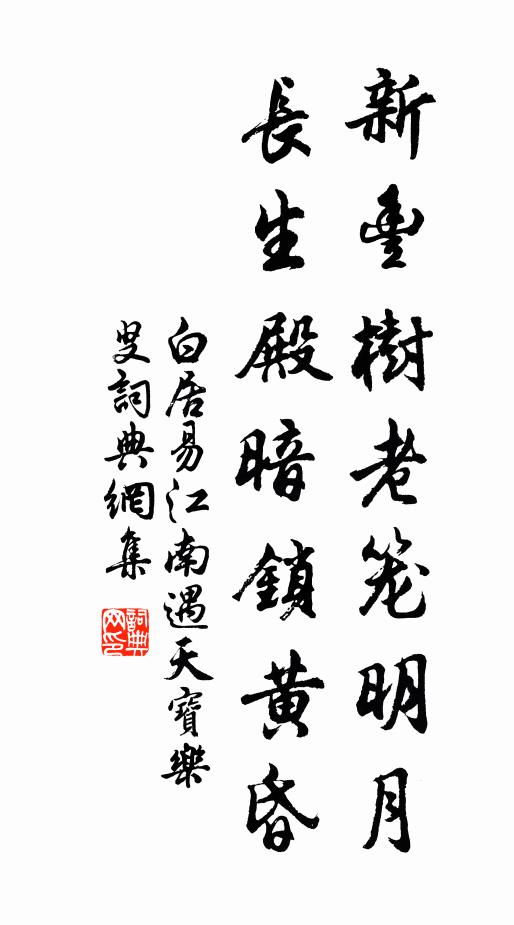 新豐樹老笼明月
長生殿暗鎖黄昏
白居易江南遇天寶樂
叟詞典網集
詞典
网印